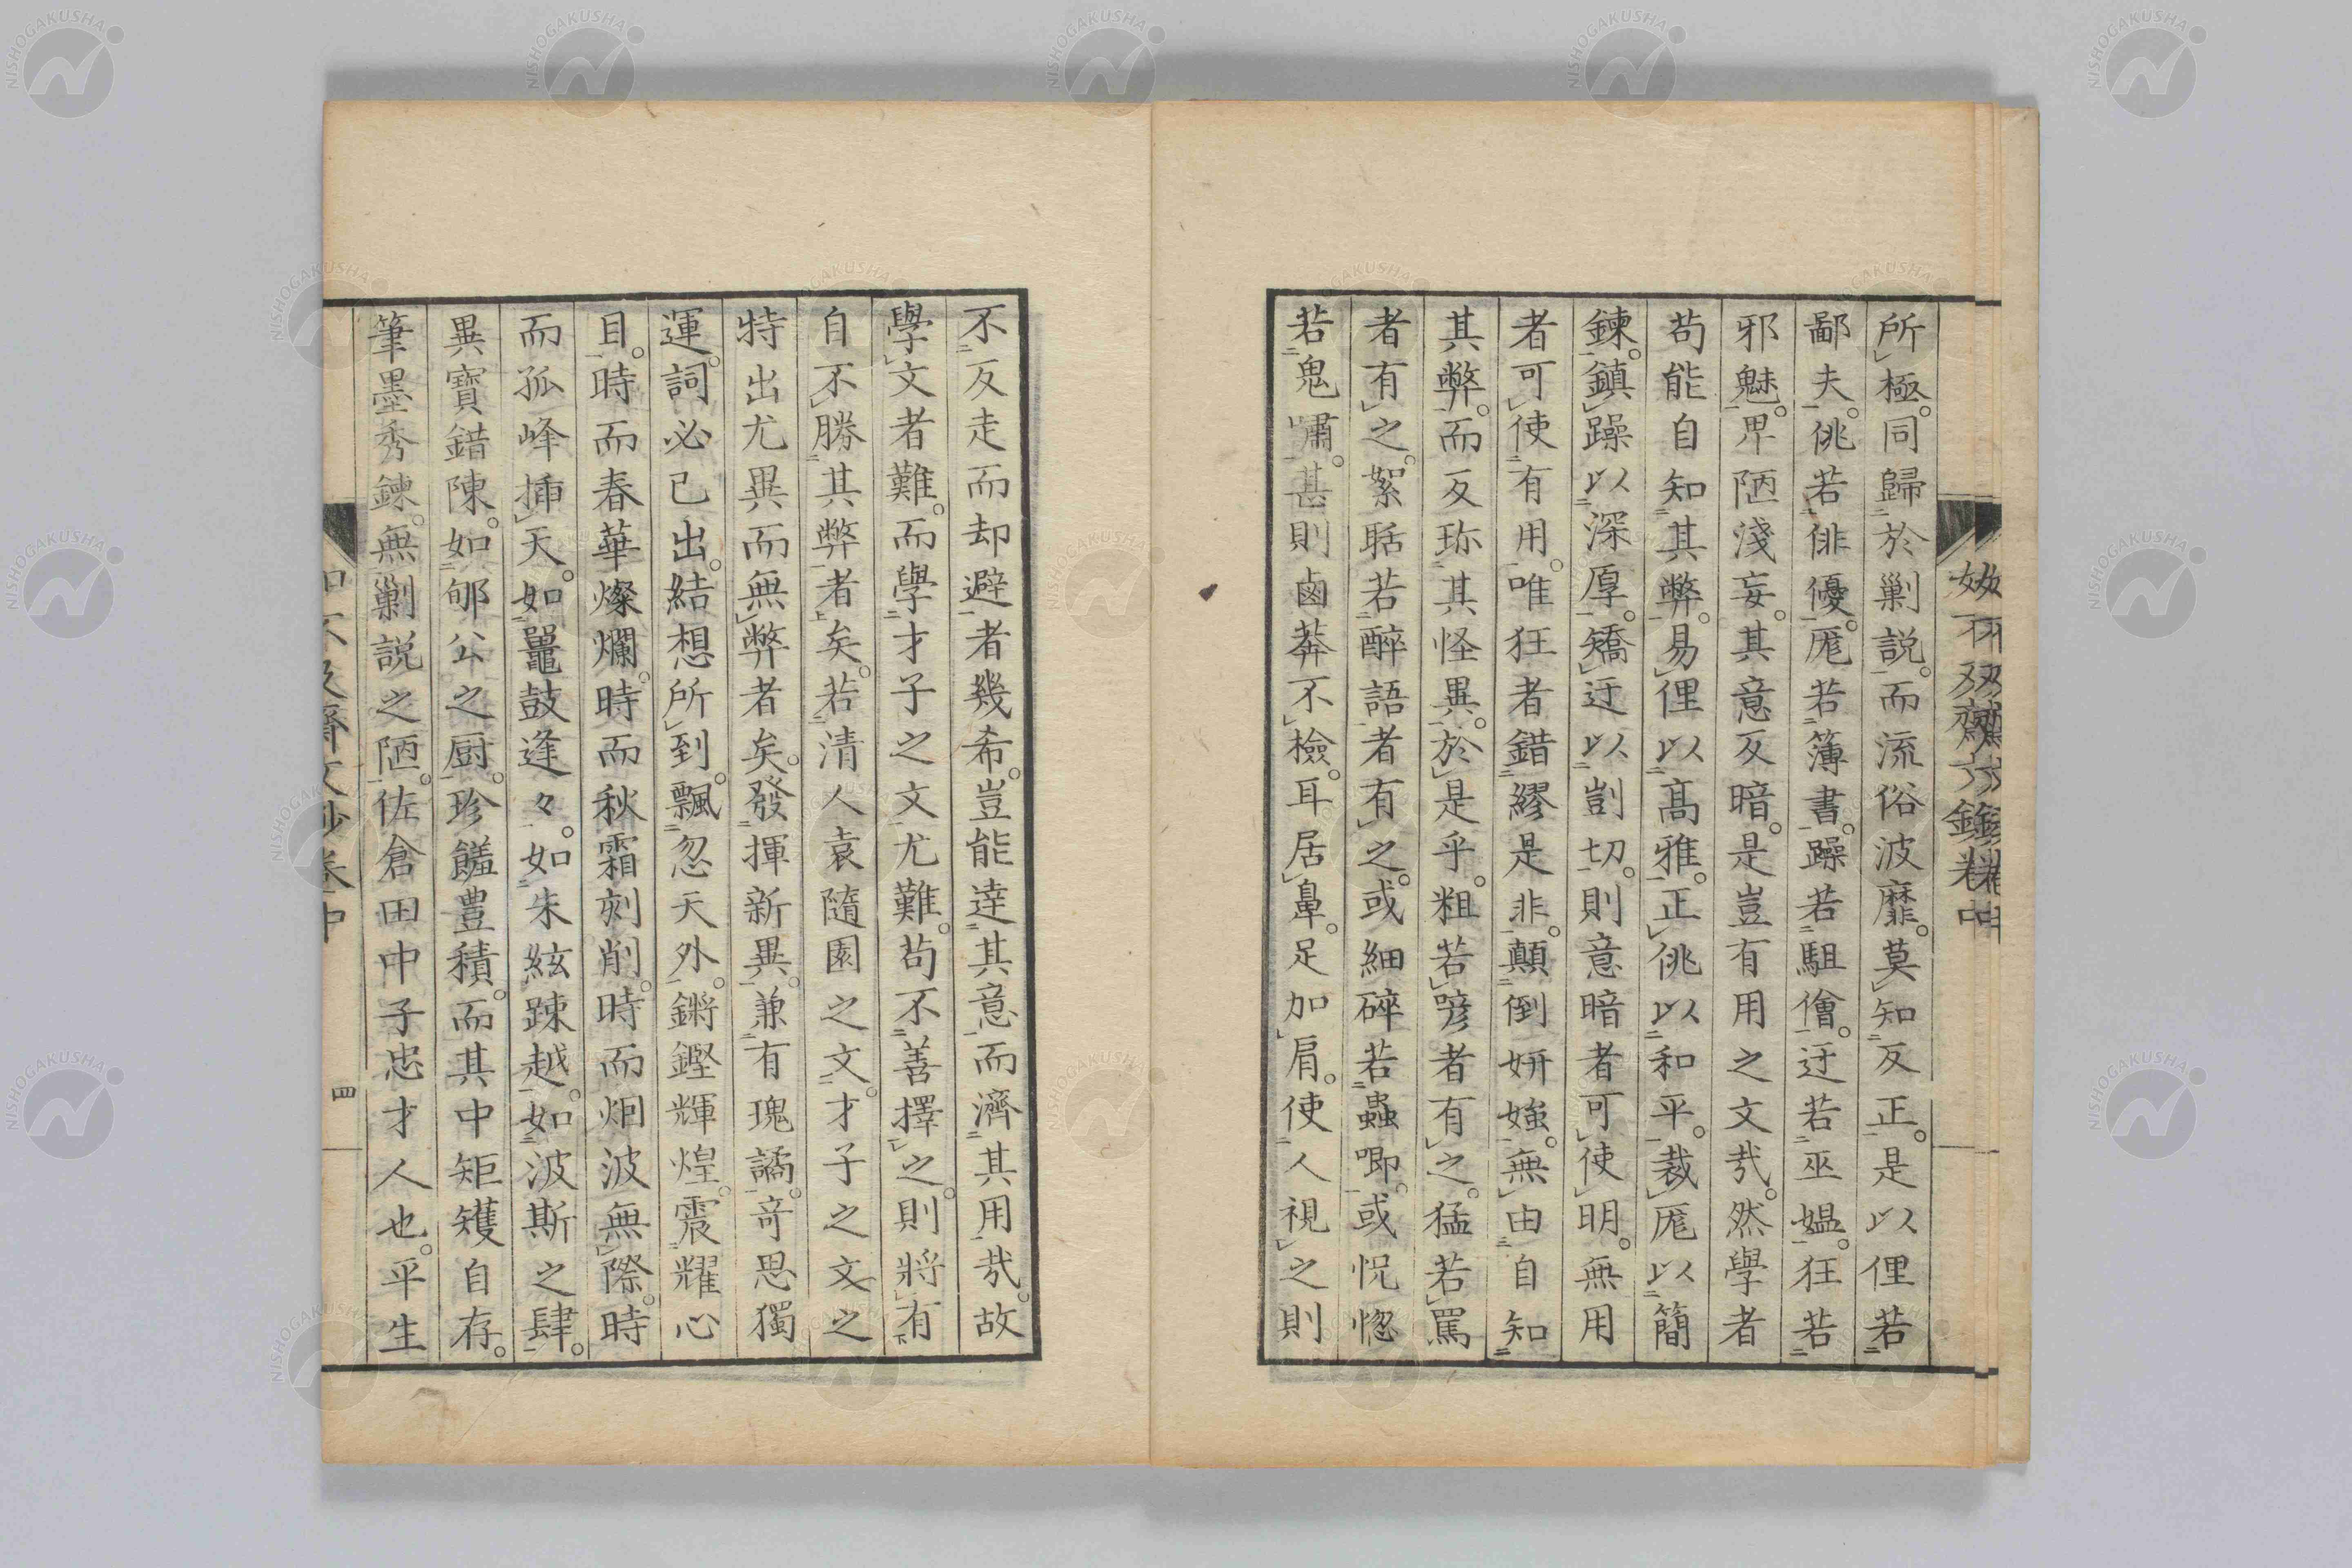 所極。同歸於剿説。而流俗波靡。莫知反正。是以俚若
鄙夫。佻若俳優。厖若簿書。躁若駔儈。迂若巫媼。狂若
邪魅。卑陋淺妄。其意反暗。是豈有用之文哉。然學者
苟能自知其弊。易俚以高雅。正佻以和平。裁厖以簡
鍊。鎮躁以深厚。矯迂以剴切。則意暗者可使明。無用
者可使有用。唯狂者錯繆是非。顛倒妍媸。無由自知
其弊。而反珎其怪異。於是乎。粗若喭者有之。猛若罵
者有之。絮聒若醉語者有之。或細碎若蟲喞。或怳惚
若鬼嘯。甚則鹵莽不檢。耳居鼻。足加肩。使人視之則
不反走而却避者幾希。豈能達其意而濟其用哉。故
學文者難。而學才子之文尤難。苟不善擇之。則將有
自不勝其弊者矣。若清人袁隨園之文。才子之文之
特出尤異而無弊者矣。發揮新異。兼有瑰譎。奇思獨
運。詞必己出。結想所到。飄忽天外。鏘鏗輝煌。震耀心
目。時而春華燦爛。時而秋霜刻削。時而烟波無際。時
而孤峰插天。如鼉鼓逢々。如朱絃踈越。如波斯之肆。
異寶錯陳。如郇公之厨。珍饈豊積。而其中矩矱自存。
筆墨秀鍊。無剿説之陋。佐倉田中子忠才人也。平生
四
NISHOGAKUSHA